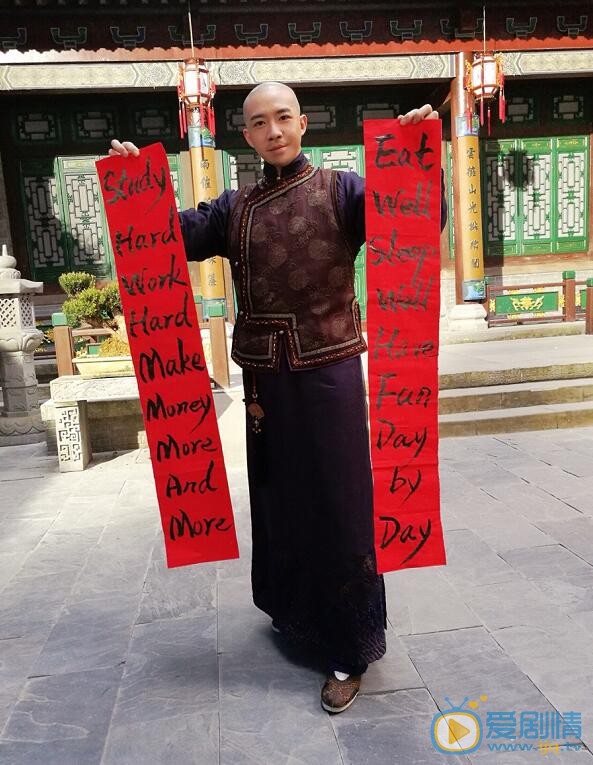 Study
Hard
Work
Hard
Make
Money
More
And
More
Eat
Well
Sleep
Well
Have
Fun
Day
by
Day
爱剧情